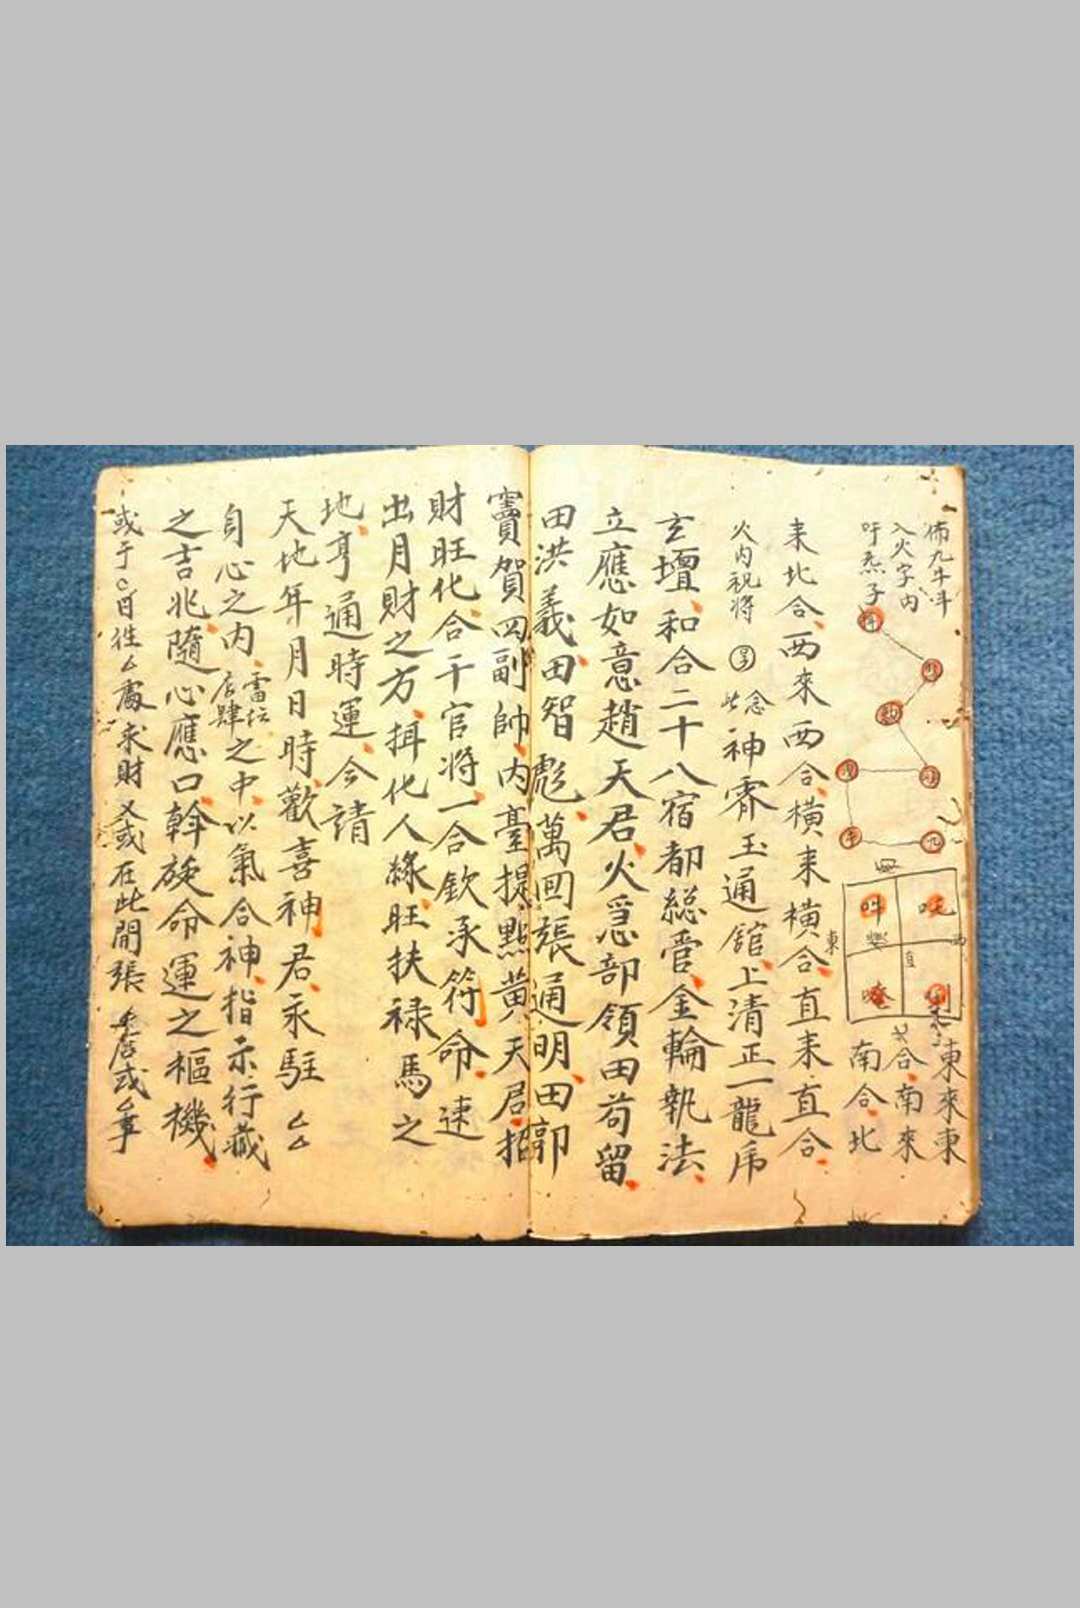 佈九斗斗
入火字內
吁炁子
東來東
合、南來
南合、北
來北合、西來西合、橫來橫合、直來直合、
火內祝將
念此
神霄玉通館、上清正一龍虎
玄壇、和合二十八宿都總管、金輪執法、
立應如意趙天君、火急部領田苟留、
田洪義、田智彪、萬回張通明、田郭
竇賀四副帥、內臺提點黃天君、招
財旺化、合干官將、一合欽承符命、速
出月財之方、挕化人緣、旺扶祿馬之
地、亨通時運、今請
天地年月日時、歡喜神君、永駐厶厶
自心之內、雷坛店肆之中、以氣合神、指示行藏
之吉兆、隨心應口、斡旋命運之樞機、
或于厶日往厶處求財 又或在此開張 厶店或厶事